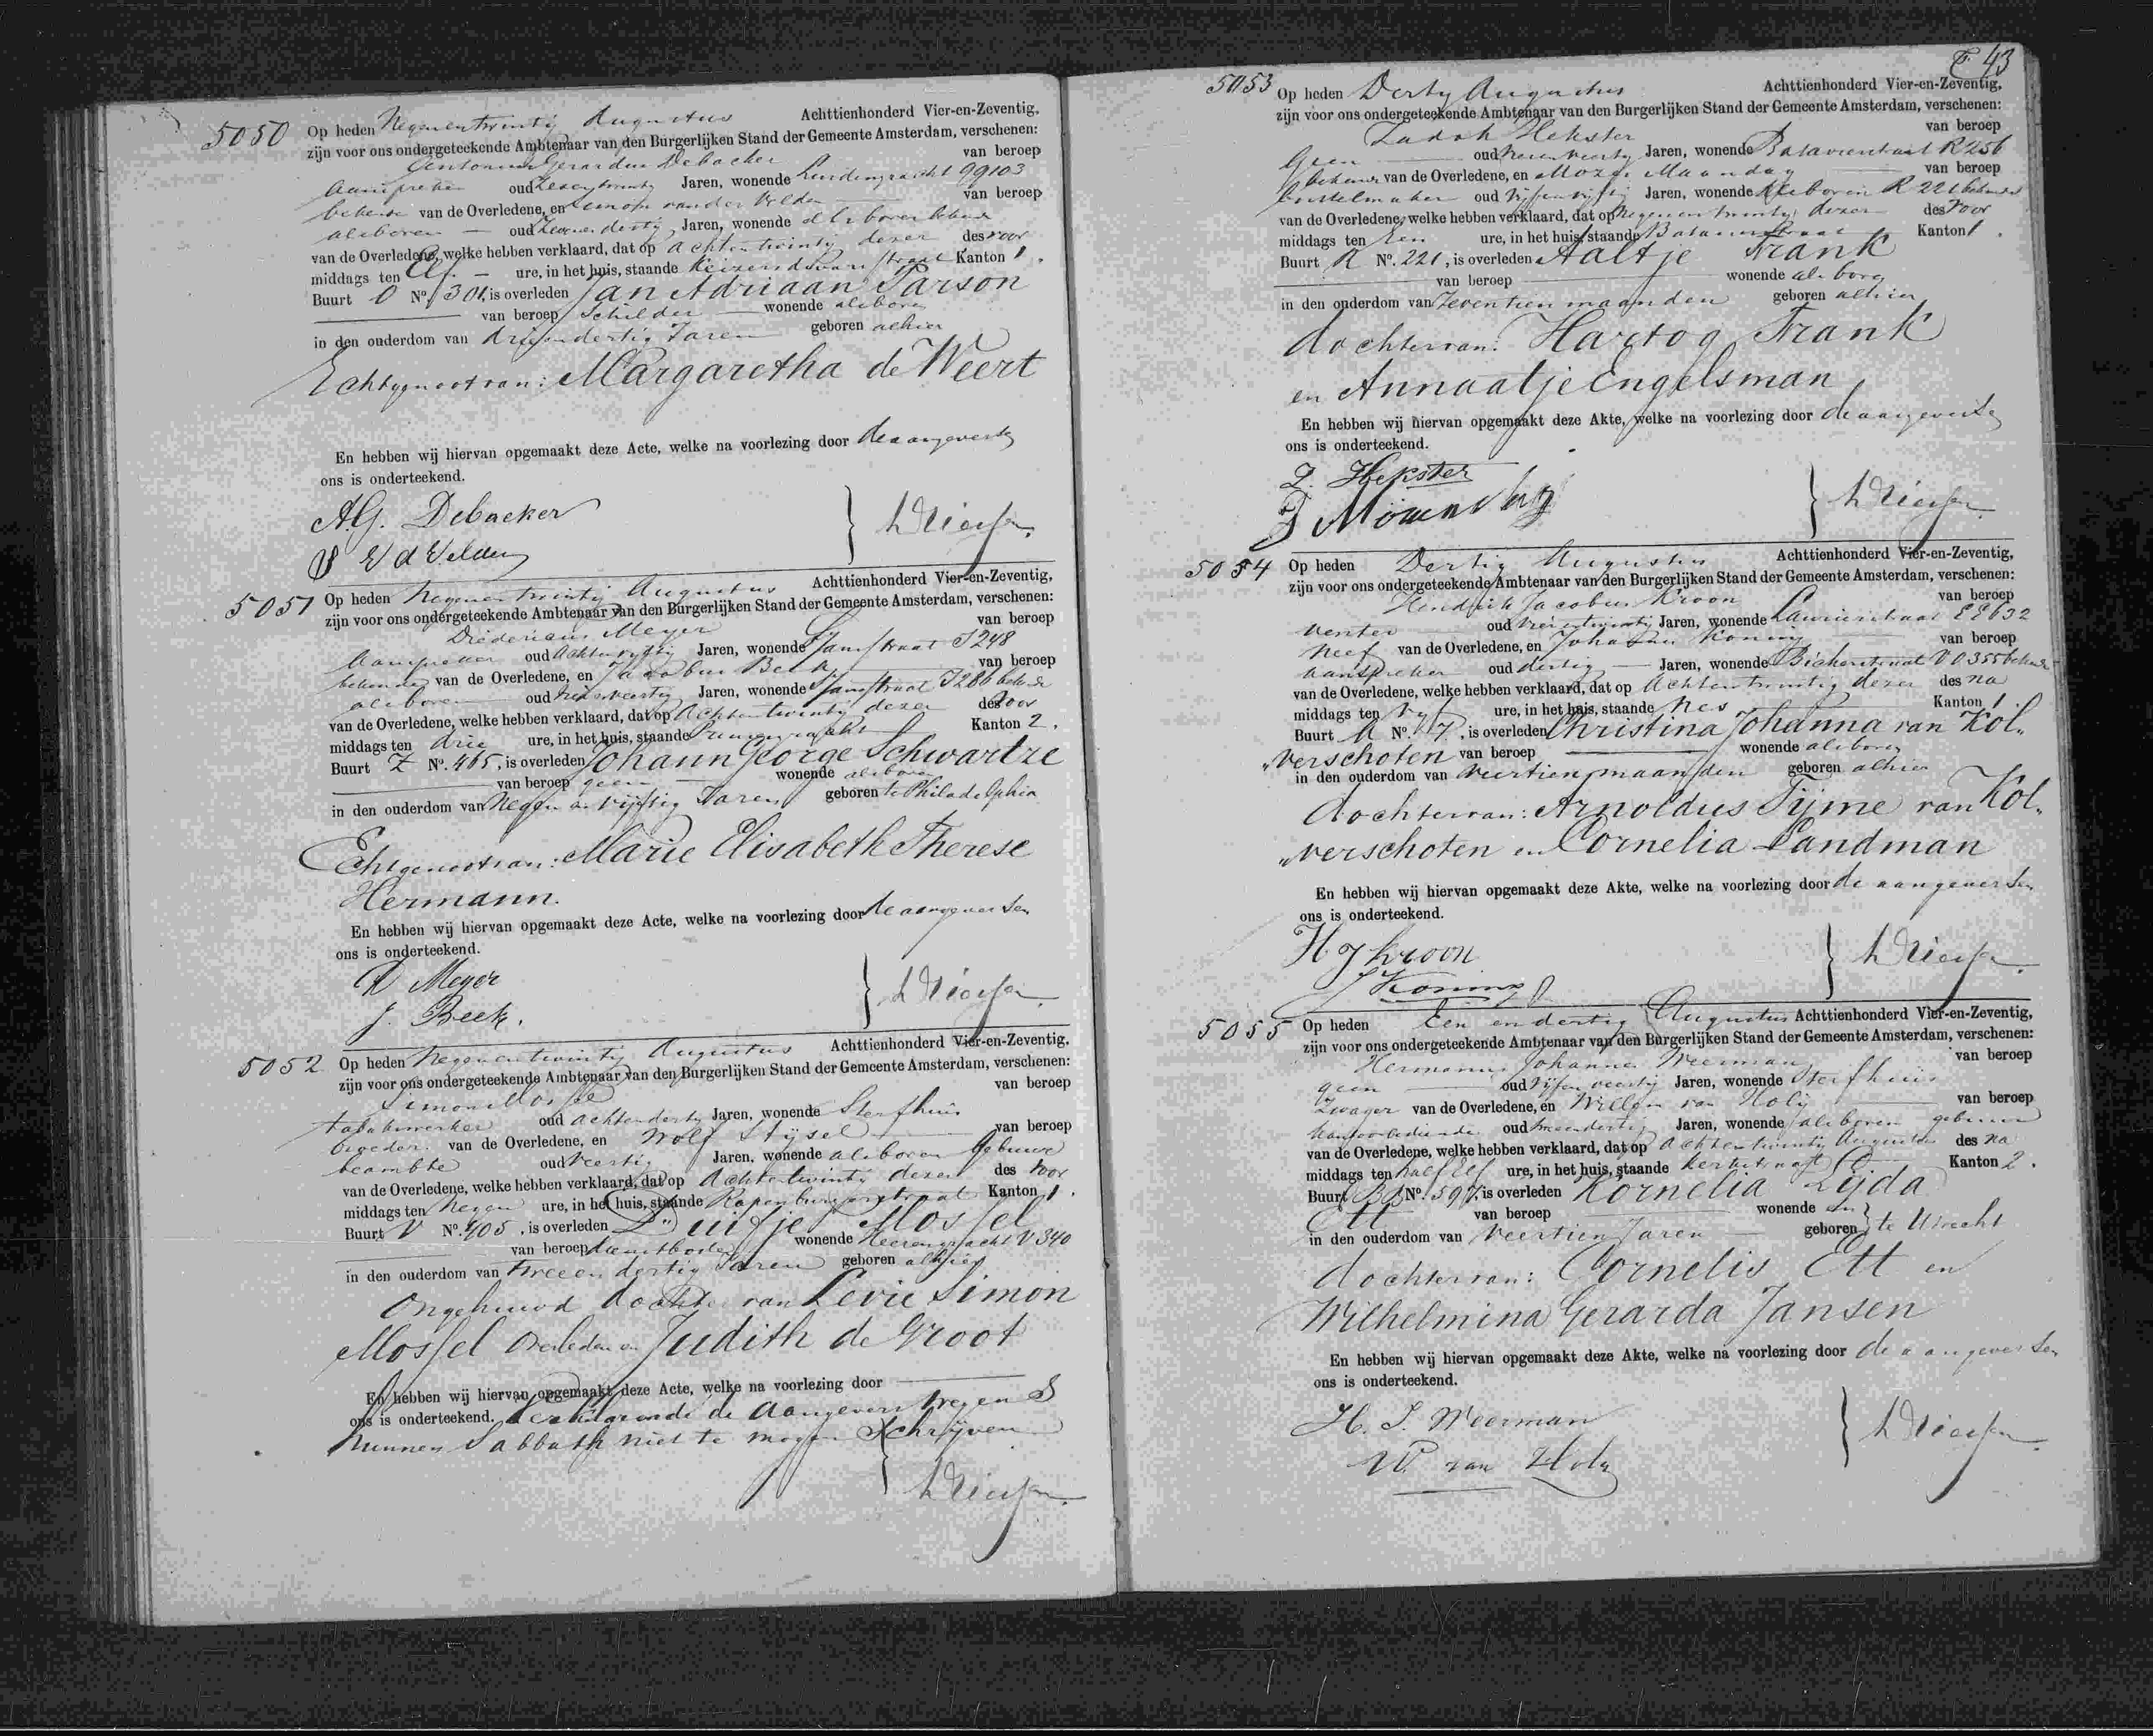 5050 Op heden Negenentwintig Augustus Achttienhonderd Vier-en-Zeventig,
zijn voor ons ondergeteekende Ambtenaar van den Burgerlijken Stand der Gemeente Amsterdam, verschenen:
Antonius Gerardus Debacker van beroep
Aanspreker oud Jaren, wonende Lindengracht 99103
bekende van de Overledene, en Simon van der Velden van beroep
alsboven oud Jaren, wonende alsboven bekende
van de Overledene, welke hebben verklaard, dat op achtentwintig dezer des voor
middags ten Elf ure, in het huis, staande Keizersdwarsstraat Kanton 1.
Buurt O No. 301. is overleden Jan Adriaan Parson
van beroep Schilder wonende alsboven
in den ouderdom van drieendertig Jaren geboren alhier
Echtgenoot van: Margaretha de Weert
En hebben wij hiervan opgemaakt deze Acte, welke na voorlezing door de aangevers en
ons is onderteekend.
A.G. Debacker
S V d Velden
5051 Op heden Negenentwintig Augustus Achttienhonderd Vier-en-Zeventig,
zijn voor ons ondergeteekende Ambtenaar van den Burgerlijken Stand der Gemeente Amsterdam, verschenen:
Diedericus Meyer van beroep
Aanspreker oud Achtenvijftig Jaren, wonende straat J 248
bekende van de Overledene, en Jacobus Beek van beroep
alsboven oud Jaren, wonende straat J 286 bekende
van de Overledene, welke hebben verklaard, dat op Achtentwintig dezer des voor
middags ten drie ure, in het huis, staande Prinsengracht Kanton 2.
Buurt Z No. 465, is overleden Johann George Schwartze
van beroep geen wonende alsboven
in den ouderdom van Negen en vijftig Jaren geboren te Philadelphia
Echtgenoot van: Marie Elisabeth Therese
Hermann.
En hebben wij hiervan opgemaakt deze Acte, welke na voorlezing door de aangevers en
ons is onderteekend.
D Meyer
J. Beek.
5052 Op heden Negenentwintig Augustus Achttienhonderd Vier-en-Zeventig,
zijn voor ons ondergeteekende Ambtenaar van den Burgerlijken Stand der Gemeente Amsterdam, verschenen:
Simon Mossel van beroep
tabakwerker oud achtendertig Jaren, wonende Sterfhuis
broeder van de Overledene, en Wolf Stijsel van beroep
beambte oud Veertig Jaren, wonende alsboven Gebuur
van de Overledene, welke hebben verklaard, dat op Achtentwintig dezer des voor
middags ten Negen ure, in het huis, staande Rapenburgerstraat Kanton 1.
Buurt V No. 405, is overleden Duifje Mossel
van beroep dienstbode wonende Heerengracht V 340
in den ouderdom van tweeen dertig Jaren geboren alhier
Ongehuwd dochter van Levie Simon
Mossel Overleden en Judith de Groot
En hebben wij hiervan opgemaakt deze Acte, welke na voorlezing door
ons is onderteekend. Verklarende de Aangevers wegens
hunnen Sabbath niet te mogen Schrijven
F 43
5053 Op heden Dertig Augustus Achttienhonderd Vier-en-Zeventig,
zijn voor ons ondergeteekende Ambtenaar van den Burgerlijken Stand der Gemeente Amsterdam, verschenen:
Zadok Hekster van beroep
Geen oud Jaren, wonende Batavierstraat R 256
bekende van de Overledene, en Mozes Maandag van beroep
Borstelmaker oud vijfenvijftig Jaren, wonende Alsboven R 221 bekende
van de Overledene, welke hebben verklaard, dat op Negenentwintig dezer des voor
middags ten Een ure, in het huis, staande Batavierstraat Kanton 1.
Buurt R No. 221, is overleden Aaltje Frank
van beroep wonende alsboven
in den ouderdom van Zeventien maanden geboren alhier
dochter van: Hartog Frank
en Annaatje Engelsman
En hebben wij hiervan opgemaakt deze Akte, welke na voorlezing door de aangevers en
ons is onderteekend.
Z. Hekster
5054 Op heden Dertig Augustus Achttienhonderd Vier-en-Zeventig,
zijn voor ons ondergeteekende Ambtenaar van den Burgerlijken Stand der Gemeente Amsterdam, verschenen:
Hendrik Jacobus Kroon van beroep
Venter oud Jaren, wonende Laurierstraat EE 632
Neef van de Overledene, en Johannes Koning van beroep
aanspreker oud dertig Jaren, wonende Bickerstraat VO 355 bekende
van de Overledene, welke hebben verklaard, dat op Achtentwintig dezer des na
middags ten vijf ure, in het huis, staande Nes Kanton 1.
Buurt A No. 7, is overleden Christina Johanna van Kol„
„verschoten van beroep wonende alsboven
in den ouderdom van Veertien maanden geboren alhier
dochter van: Arnoldus Tijme van Kol„
„verschoten en Cornelia Landman
En hebben wij hiervan opgemaakt deze Akte, welke na voorlezing door de aangevers en
ons is onderteekend.
H J Kroon
J Koning
5055 Op heden Een en dertig Augustus Achttienhonderd Vier-en-Zeventig,
zijn voor ons ondergeteekende Ambtenaar van den Burgerlijken Stand der Gemeente Amsterdam, verschenen:
Hermanus Johannes Weerman van beroep
geen oud Vijfenveertig Jaren, wonende Sterfhuis
Zwager van de Overledene, en Willem van Holij van beroep
Kantoorbediende oud Jaren, wonende alsboven gebuur
van de Overledene, welke hebben verklaard, dat op Achtentwintig Augustus des na
middags ten half Elf ure, in het huis, staande Kerkstraat Kanton 2.
Buurt No. 597. is overleden Kornelia Lijda
Ett van beroep wonende en
in den ouderdom van Veertien Jaren geboren te Utrecht
dochter van: Cornelis Ett en
Wilhelmina Gerarda Jansen
En hebben wij hiervan opgemaakt deze Akte, welke na voorlezing door de aangevers en
ons is onderteekend.
H. J. Weerman
W. van Holy